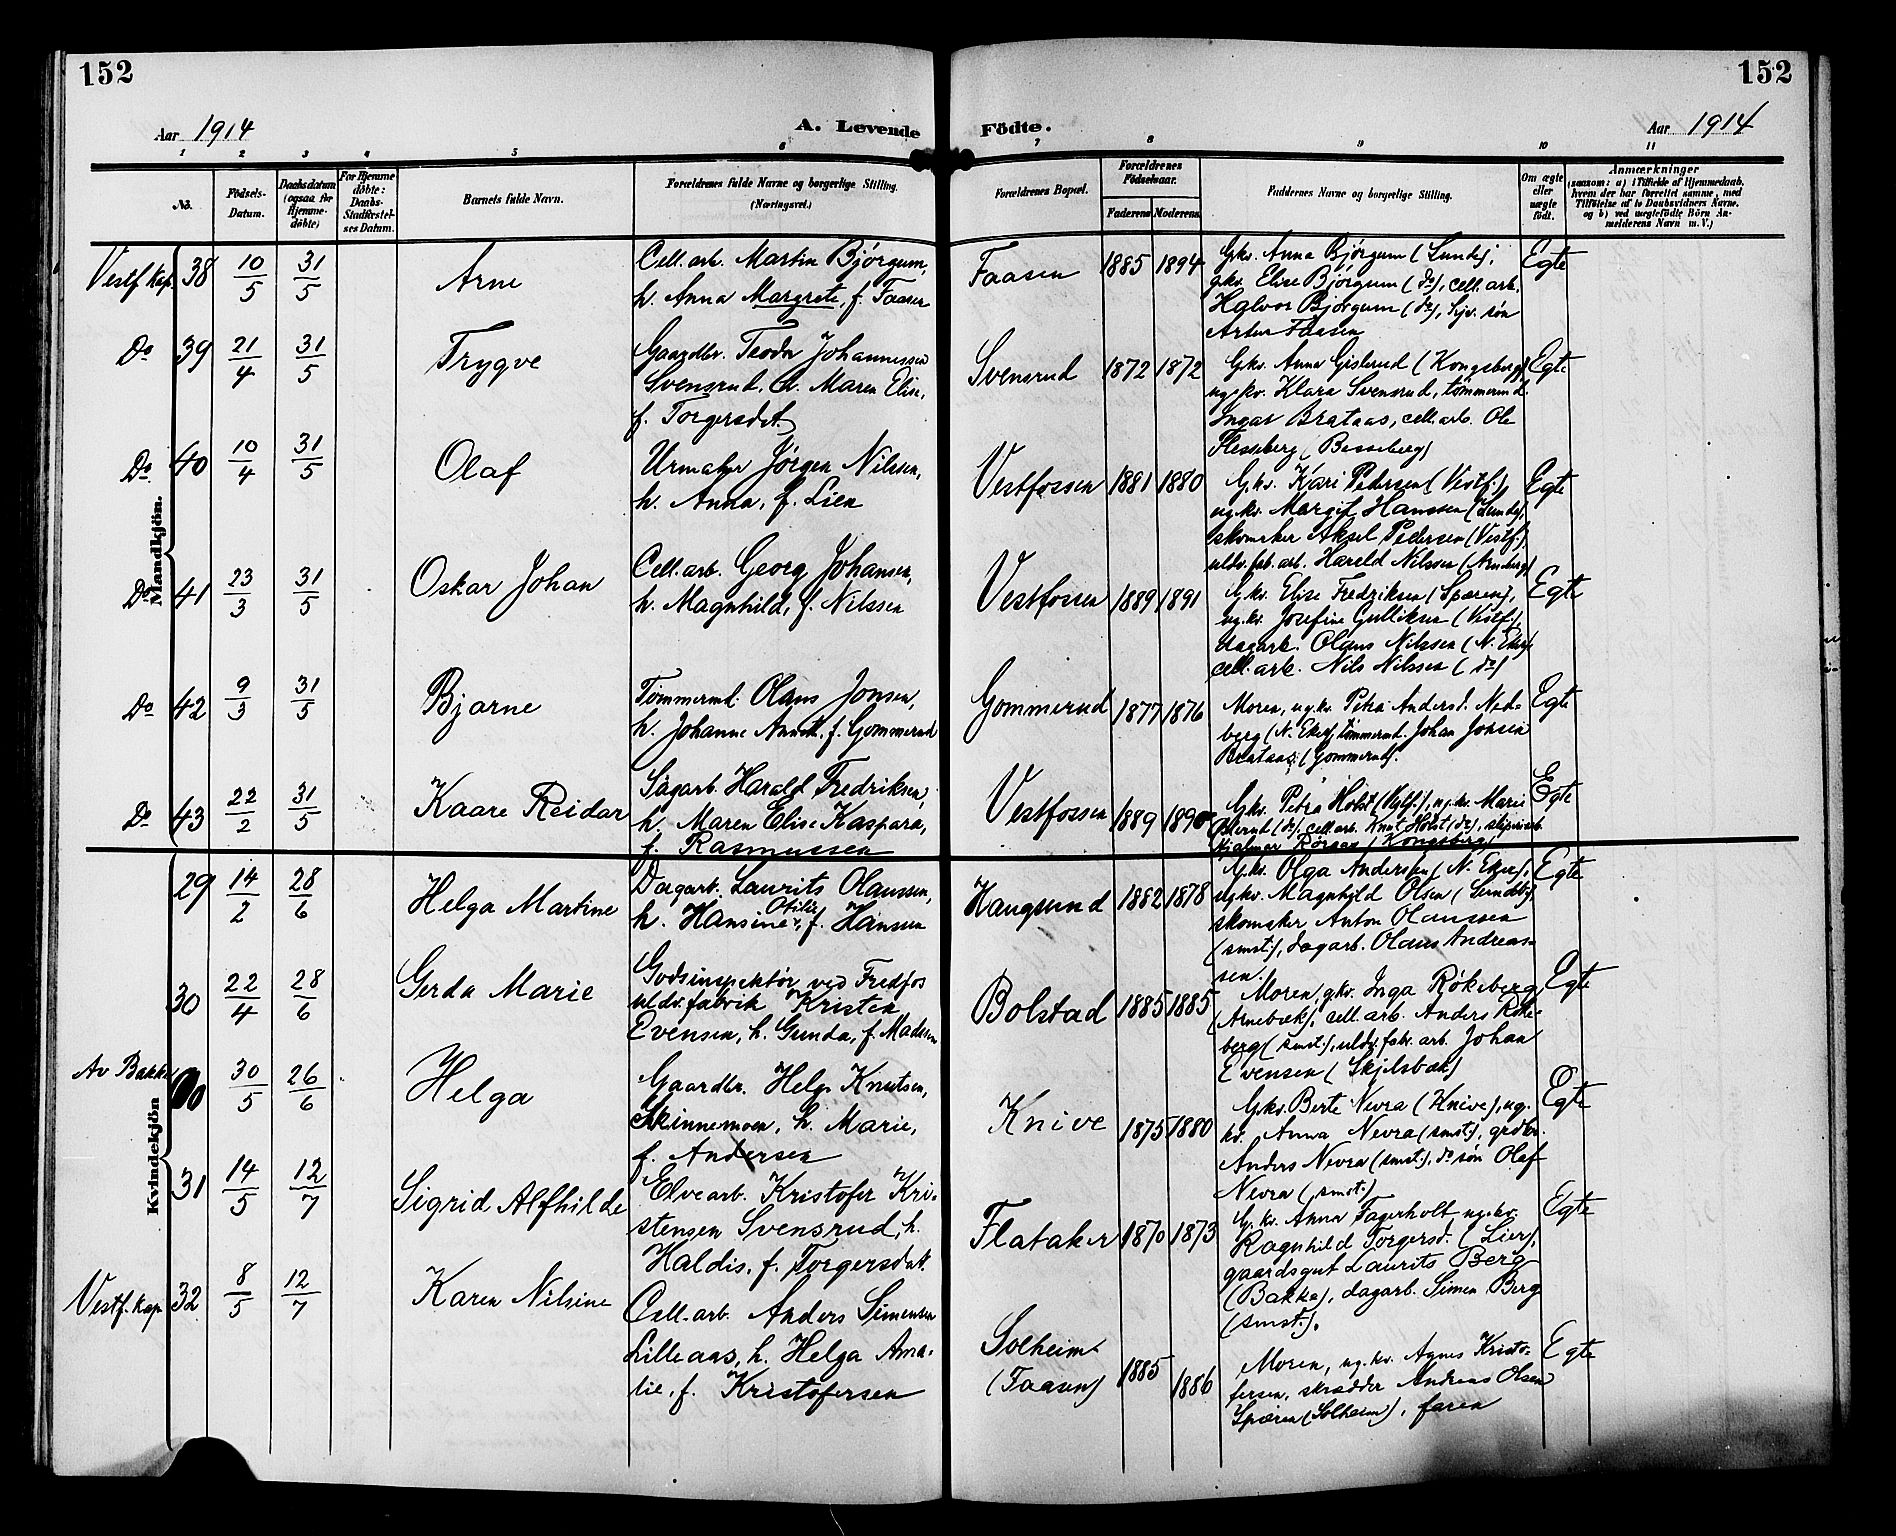 152
152
Aar 1914
A. Levende Födte.
Aar 1914
1 2 3 4 5 6 7 8 9 10 11
No.
Födsels-Datum.
Daabsdatum (ogsaa for Hjemme-döbte)
For Hjemme-döbte: Daabs-Stadfæstel-ses Datum.
Barnets fulde Navn.
Forældrenes fulde Navne og borgerlige Stilling. (Næringsvei.)
Forældrenes Bopæl.
Forældrenes Födselsaar.
Faderens Moderens
Faddernes Navne og borgerlige Stilling.
Om ægte eller uægte födt.
Anmærkninger
(saasom: a) i Tilfælde af Hjemmedaab, hvem der har forrettet samme, med Tilföielse af to Daabsvidners Navne, og b) ved uægtefödte Börn Anmelderens Navn m. V.)
Mandkjön.
Vestf. kap. 38 10/5 31/5 Arne
Cell. arb. Martin Bjørgum,
h. Anna Margrete, f. Faasen
Faasen 1885 1894
Gkv. Anna Bjørgum (Lunde),
gkv. Elise Bjørgum (do), cell. arb.
Halvor Bjørgum (do), sjv. søn
Artur Faasen
Egte
Do 39 21/4 31/5 Trygve
Gaardbr. Teodor Johannessen
Svensrud, h. Maren Elise,
f. Torgersdat.
Svensrud 1872 1872
Gkv. Anna Gislerud (Kongsberg)
ug. kv. Klara Svensrud, tømmermd.
Ingar Brataas, cell. arb. Ole
Flesberg (Besseberg)
Egte
Do 40 10/4 31/5 Olaf
Urmaker Jørgen Nilssen,
h. Anna, f. Lien
Vestfossen 1881 1880
Gkv. Kari Pedersen (Vestf.),
ug. kv. Margit Hanssen (Lunde),
skomaker Aksel Pedersen (Vestf.),
uldv. fab. arb. Harald Nilssen
Egte
Do 41 23/3 31/5 Oskar Johan
Cell. arb. Georg Johansen,
h. Magnhild, f. Nilssen
Vestfossen 1889 1891
Gkv. Elise Fredriksen (Spæren),
ug. kv. Josefine Gulliksen (Vestf.),
dagarb. Olaus Nilssen (N. Eker),
cell. arb. Nils Nilssen (do)
Egte
Do 42 9/3 31/5 Bjarne
Tømmermd. Olaus Jonsen,
h. Johanne Annet., f. Gommerud
Gommerud 1877 1876
Moren, ug. kv. Petra Andersd. Ned-
berg (N. Eker), tømmermd. Johan Jonsen
Brataas (Gommerud).
Egte
Do 43 22/2 31/5 Kaare Reidar
Sagarb. Harald Fredriksen,
h. Maren Elise Kaspara,
f. Rasmussen
Vestfossen 1889 1890
Gkv. Petra Holst (Vestf.), ug. kv. Marie
(do), cell. arb. Knut Holst (do),
Hjalmar Rørsen (Kongsberg)
Egte
Kvindekjön
29 14/2 28/6 Helga Martine
Dagarb. Laurits Olaussen,
h. Hansine Otilie, f. Hansen
Haugsund 1882 1878
Gkv. Olga Andersen (N. Eker),
ug. kv. Magnhild Olsen
skomaker Anton Olaussen
(smst.), dagarb. Olaus Andreas-
sen.
Egte
30 22/4 28/6 Gerda Marie
Godsinspektør ved Fredfos
uldv. fabrik Kristen
Evensen, h. Gunda, f. Madsen
Bolstad 1885 1885
Moren, gkv. Inga Røkeberg
(Arnebæk), cell. arb. Anders Røke-
berg (smst.), uldv. fabr. arb. Johan
Evensen (Skjelsbæk)
Egte
Av Bakke 30/5 26/6 Helga
Gaardbr. Helge Knutsen
Skinnemoen, h. Marie,
f. Andersen
Knive 1875 1880
Gkv. Berte Nevra (Knive), ug.
kv. Anna Nevra (smst.), grdbr.
Anders Nevra (smst.), do søn Olaf
Nevra (smst.)
Egte
31 14/5 12/7 Sigrid Alfhilde
Elvearb. Kristofer Kri-
stensen Svensrud, h.
Haldis, f. Torgersdat.
Flataker 1870 1873
G. kv. Anna Fagerholt ug. kv.
Ragnhild Torgersd. (Lier),
gaardsgut Laurits Berg
(Bakke), dagarb. Simen Berg
(smst.).
Egte
Vestf. kap. 32 8/5 12/7 Karen Nilsine
Cell. arb. Anders Simensen
Lilleaas, h. Helga Ama-
lie, f. Kristofersen
Solheim
(Faasen)
1885 1886
Moren, ug. kv. Agnes Kristo-
fersen, skrædder Andreas Olsen
Spæren (Solheim), faren
Egte